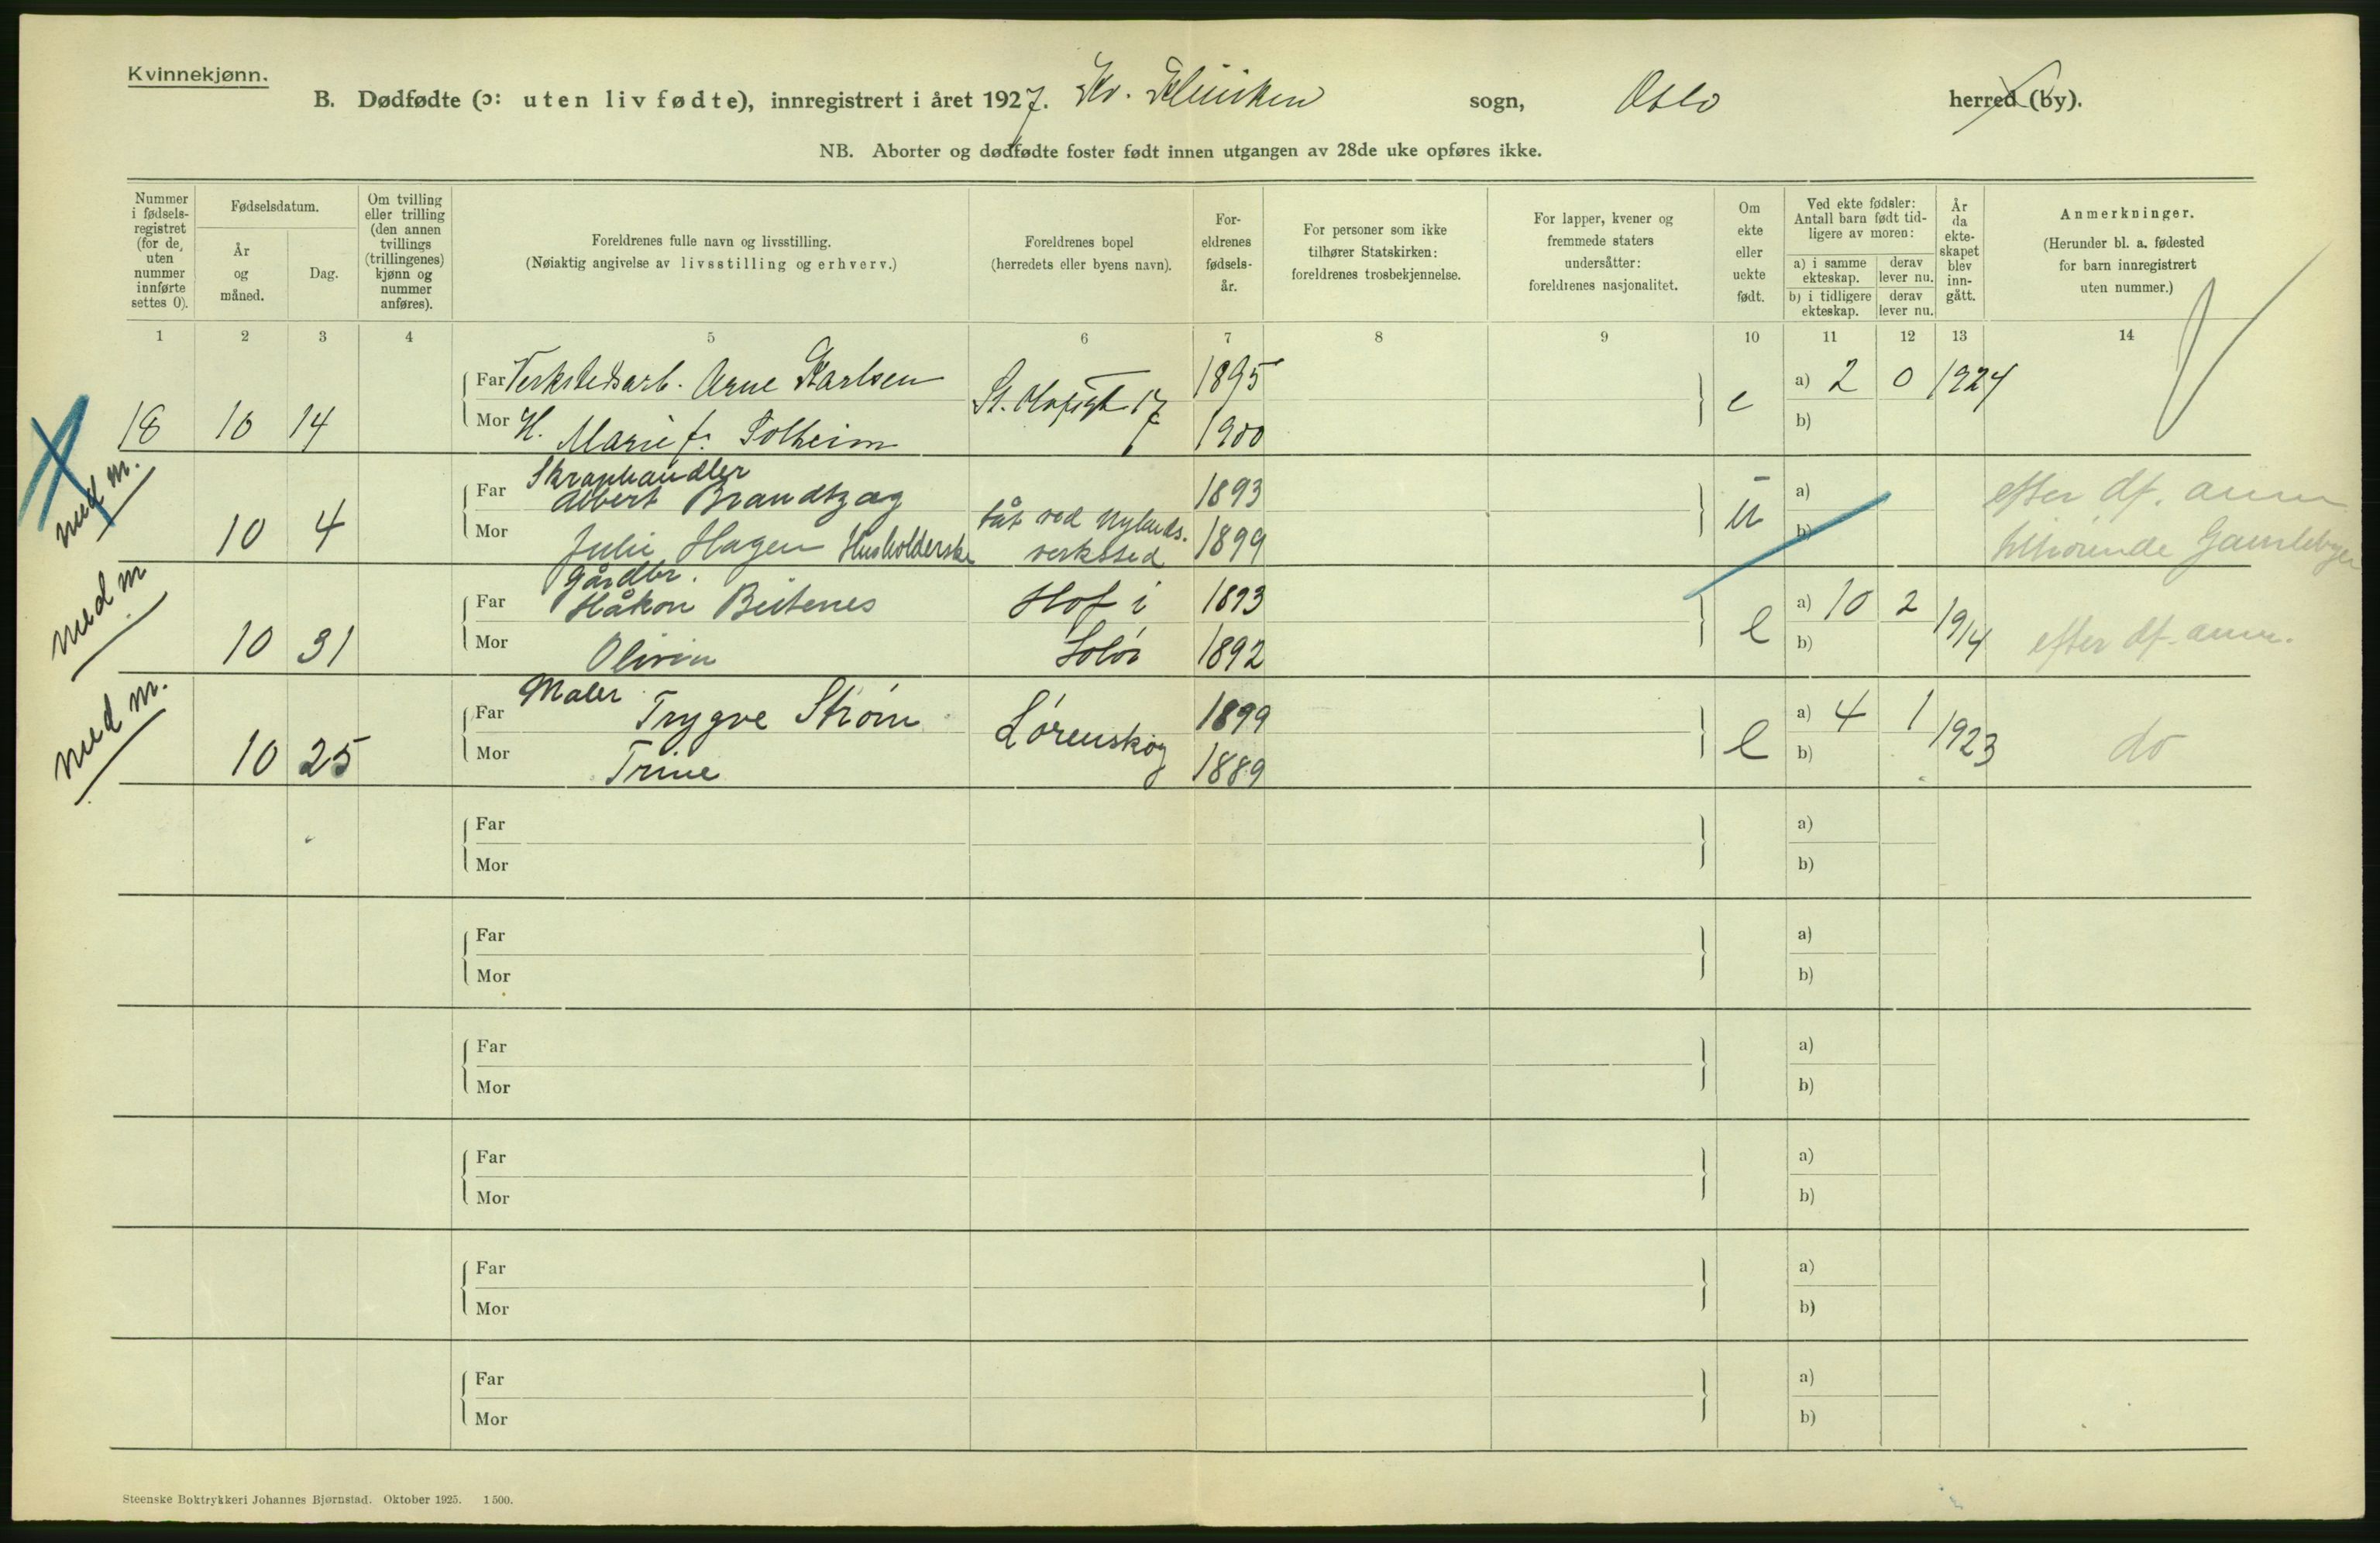 Kvinnekjønn.
B. Dødfødte (ɔ: uten liv fødte), innregistrert i året 1927. Kv. Klinikken sogn, Oslo herred (by).
NB. Aborter og dødfødte foster født innen utgangen av 28de uke opføres ikke.
Nummer i fødsels-registret (for de uten nummer innførte settes 0).
Fødselsdatum.
År og måned.
Dag.
Om tvilling eller trilling (den annen tvillings (trillingenes) kjønn og nummer anføres).
Foreldrenes fulle navn og livsstilling.
(Nøiaktig angivelse av livsstilling og erhverv.)
Foreldrenes bopel
(herredets eller byens navn).
For-eldrenes fødsels-år.
For personer som ikke tilhører Statskirken: foreldrenes trosbekjennelse.
For lapper, kvener og fremmede staters undersåtter: foreldrenes nasjonalitet.
Om ekte eller uekte født.
Ved ekte fødsler: Antall barn født tid-ligere av moren:
a) i samme ekteskap.
derav lever nu.
b) i tidligere ekteskap.
derav lever nu.
År da ekte-skapet blev inn-gått.
Anmerkninger.
(Herunder bl. a. fødested for barn innregistrert uten nummer.)
1 2 3 4 5 6 7 8 9 10 11 12 13 14
18 10 14
Far Verkstedsarb. Arne Karlsen St. Olafsgt 17 1895 e a) 2 0 1924
Mor H. Marie f. Solheim 1900 b)
med m.
10 4
Skraphandler
Far Albert Brandtzæg 1893 u a) efter df. anm
Mor Julie Hagen Husholderske båt ved Nylands. verksted 1899 b) tilhørende Gamlebyen
med m
10 31
Gårdbr.
Far Håkon Beitenes Hof i 1893 e a) 10 2 1914
Mor Olivin Solør 1892 b) efter df. anm.
med m.
10 25
Maler
Far Trygve Strøm Lørenskog 1899 e a) 4 1 1923 do
Mor Trine 1889 b)
Far a)
Mor b)
Far a)
Mor b)
Far a)
Mor b)
Far a)
Mor b)
Far a)
Mor b)
Far a)
Mor b)
Steenske Boktrykkeri Johannes Bjørnstad. Oktober 1925. 1500.